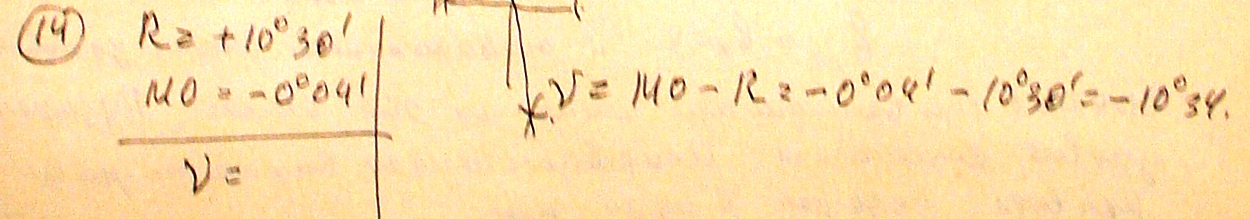 14 R = +10°30'
MO = -0°04'
ν =
ν = MO - R = -0°04' - 10°30' = -10°34.